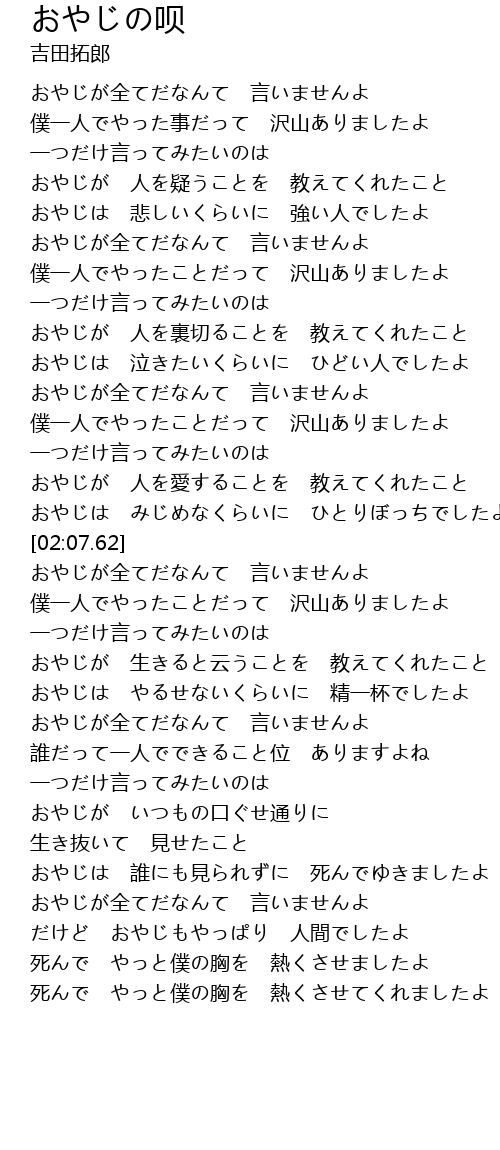 おやじの唄
吉田拓郎
おやじが全てだなんて　言いませんよ
僕一人でやった事だって　沢山ありましたよ
一つだけ言ってみたいのは
おやじが　人を疑うことを　教えてくれたこと
おやじは　悲しいくらいに　強い人でしたよ
おやじが全てだなんて　言いませんよ
僕一人でやったことだって　沢山ありましたよ
一つだけ言ってみたいのは
おやじが　人を裏切ることを　教えてくれたこと
おやじは　泣きたいくらいに　ひどい人でしたよ
おやじが全てだなんて　言いませんよ
僕一人でやったことだって　沢山ありましたよ
一つだけ言ってみたいのは
おやじが　人を愛することを　教えてくれたこと
おやじは　みじめなくらいに　ひとりぼっちでしたよ
[02:07.62]
おやじが全てだなんて　言いませんよ
僕一人でやったことだって　沢山ありましたよ
一つだけ言ってみたいのは
おやじが　生きると云うことを　教えてくれたこと
おやじは　やるせないくらいに　精一杯でしたよ
おやじが全てだなんて　言いませんよ
誰だって一人でできること位　ありますよね
一つだけ言ってみたいのは
おやじが　いつもの口ぐせ通りに
生き抜いて　見せたこと
おやじは　誰にも見られずに　死んでゆきましたよ
おやじが全てだなんて　言いませんよ
だけど　おやじもやっぱり　人間でしたよ
死んで　やっと僕の胸を　熱くさせましたよ
死んで　やっと僕の胸を　熱くさせてくれましたよ